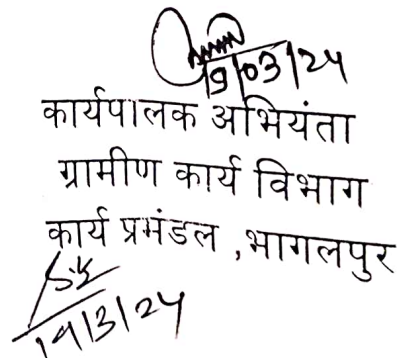 19/03/24
कार्यपालक अभियंता
ग्रामीण कार्य विभाग
कार्य प्रमंडल ,भागलपुर
19/3/24